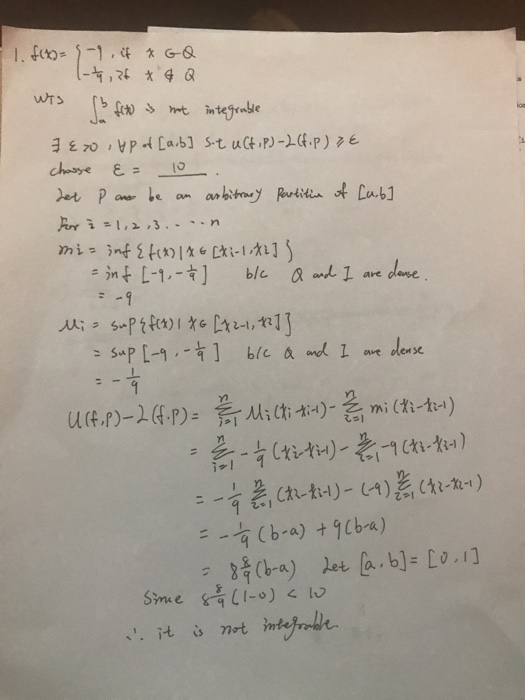 1. f(x) = { -9, if x ∈ Q
-1/9, if x ∉ Q
WTS ∫_a^b f(x) is not integrable
∃ ε > 0, ∀ P of [a,b] s.t U(f,P) - L(f,P) ≥ ε
choose ε = 10.
Let P be an arbitrary Partition of [a,b]
For i = 1, 2, 3 . . . . n
mi = inf { f(x) | x ∈ [xi-1, xi] }
= inf [-9, -1/9] b/c Q and I are dense.
= -9
Mi = sup { f(x) | x ∈ [xi-1, xi] }
= sup [-9, -1/9] b/c Q and I are dense
= -1/9
U(f,P) - L(f,P) = Σ_{i=1}^n Mi (xi - xi-1) - Σ_{i=1}^n mi (xi - xi-1)
= Σ_{i=1}^n -1/9 (xi - xi-1) - Σ_{i=1}^n -9 (xi - xi-1)
= -1/9 Σ_{i=1}^n (xi - xi-1) - (-9) Σ_{i=1}^n (xi - xi-1)
= -1/9 (b-a) + 9(b-a)
= 8 8/9 (b-a) Let [a,b] = [0,1]
Since 8 8/9 (1-0) < 10
∴ it is not integrable.